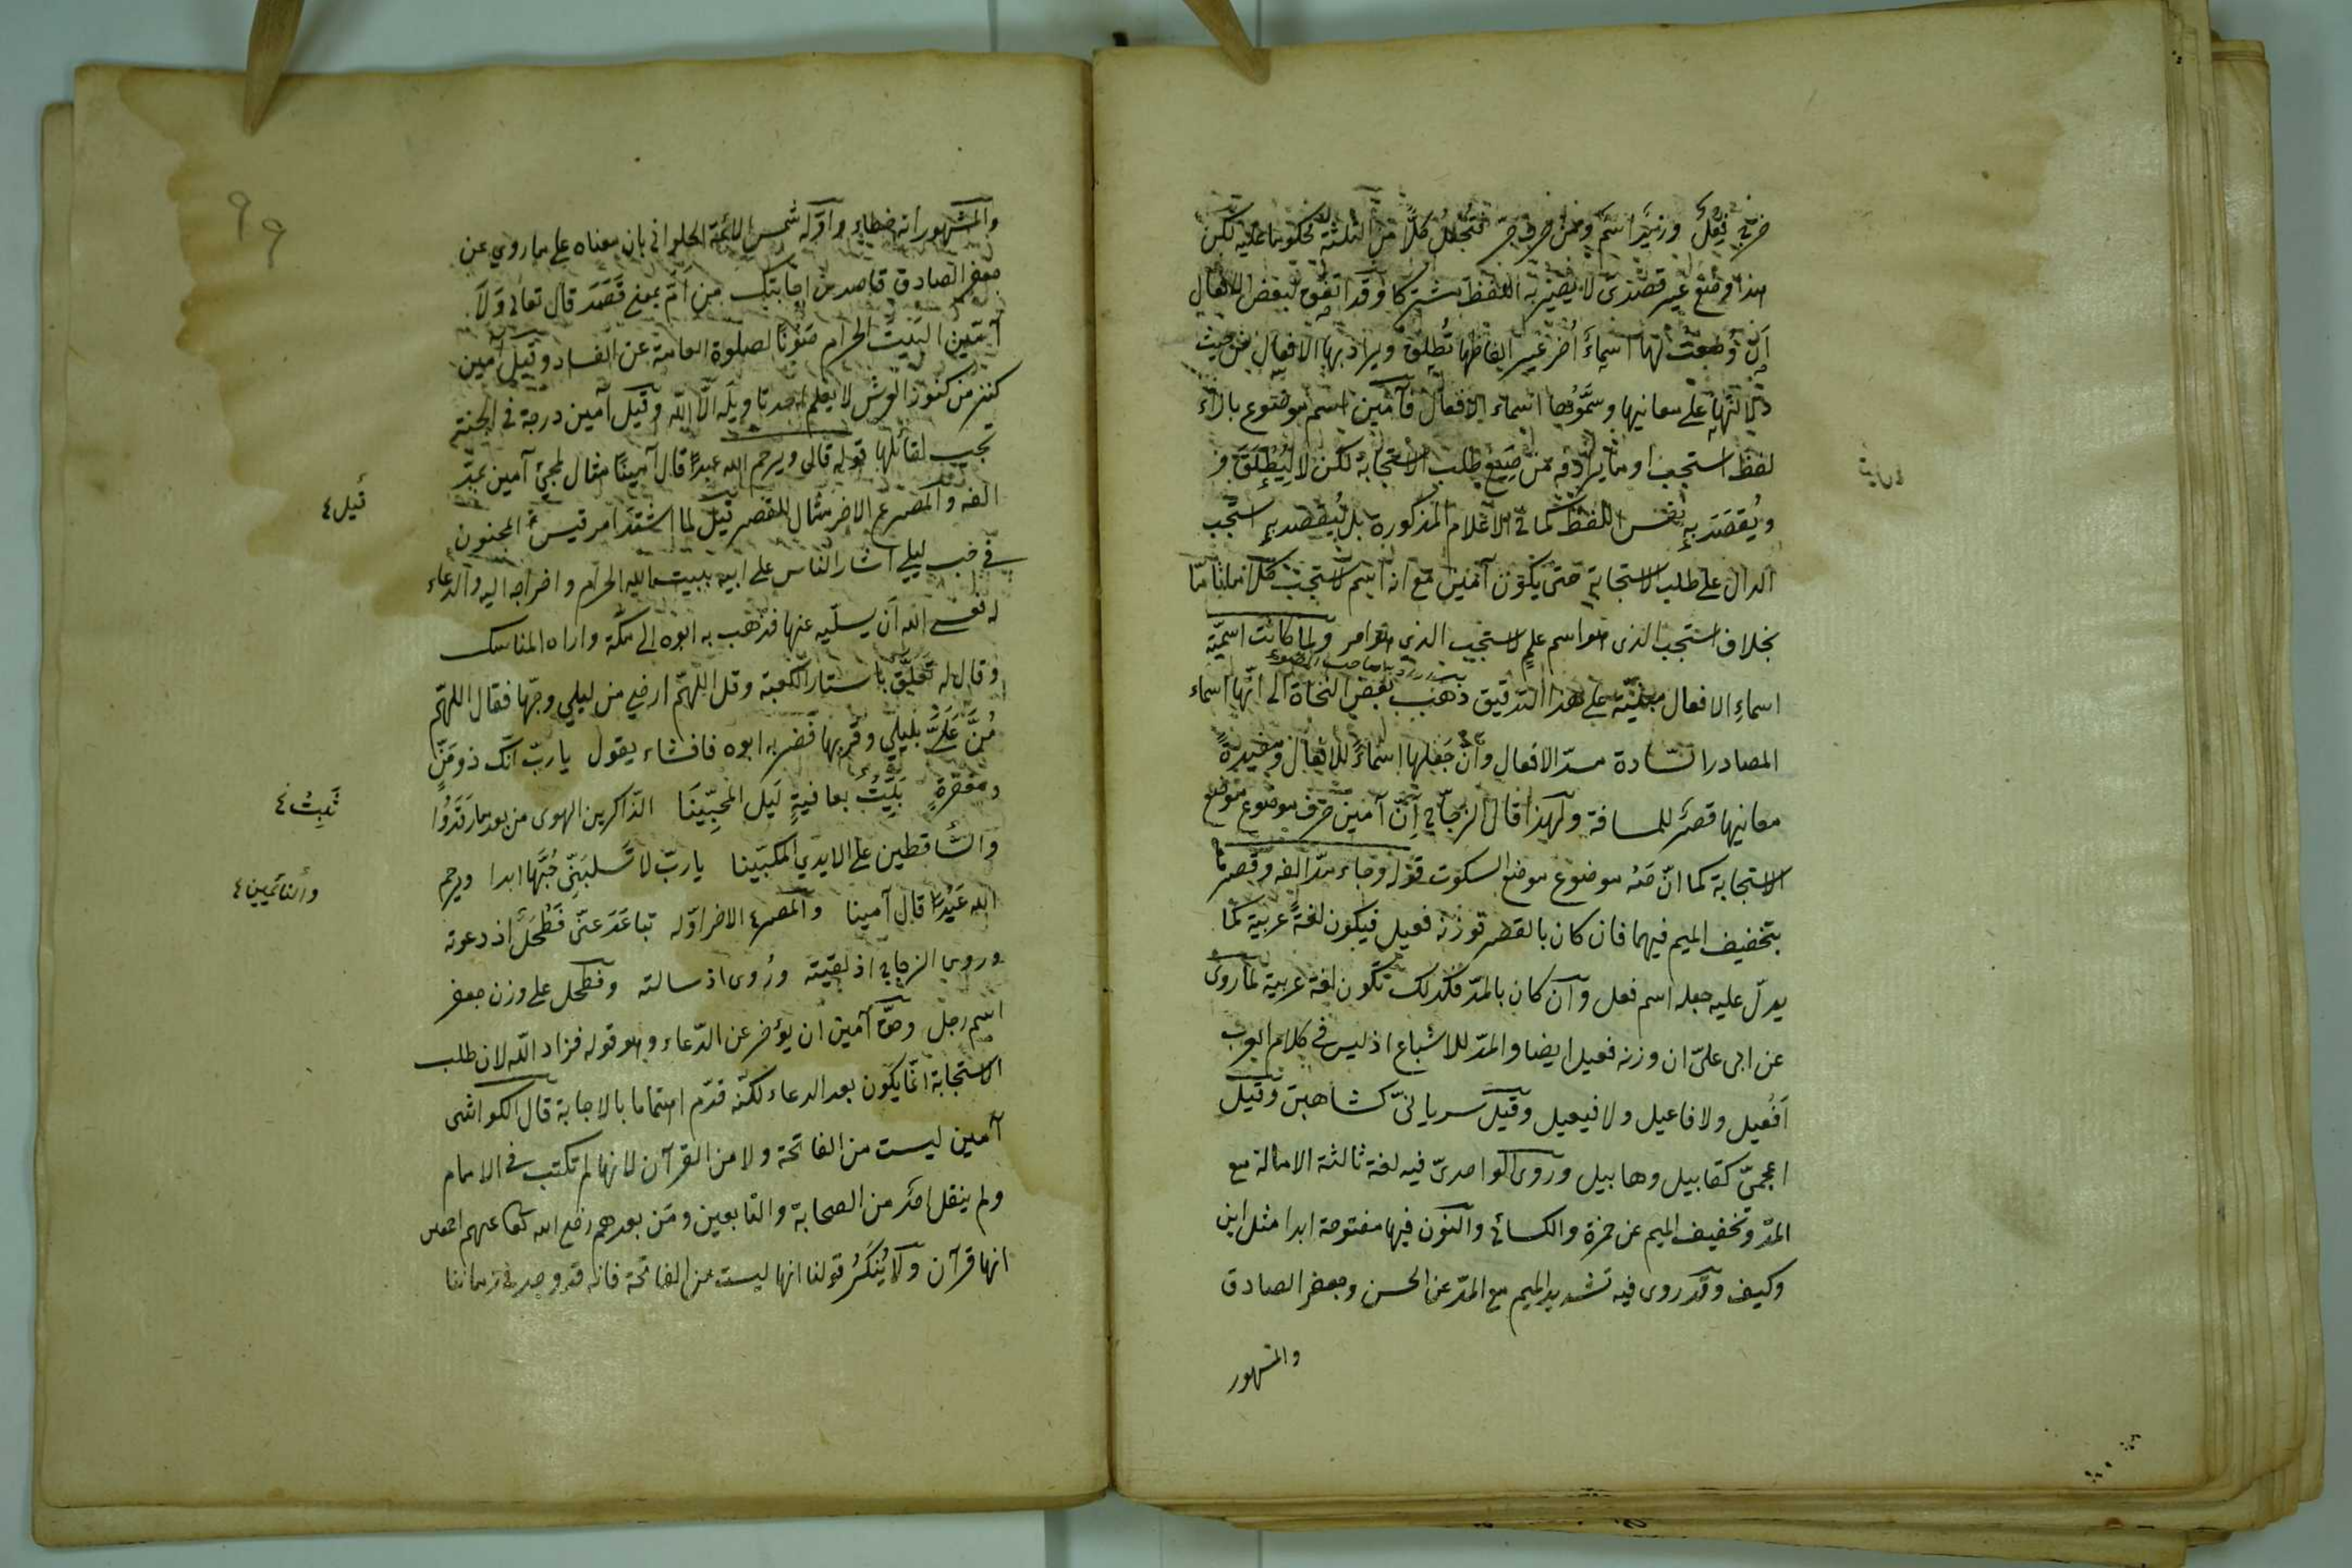 ضرب فعل وزيد اسم ومن حرف جر فتجعل كلا من الثلثة محكوما عليه لكن
هذا وضع غير قصدى لا يصير به اللفظ مشتركا وقد اتفق لبعض الافعال
ان وضعت لها اسماء أخر غير الفاظها تطلق ويراد بها الافعال من حيث
دلالتها على معانيها وسموها اسماء الافعال فآمين اسم موضوع بازاء
لفظ استجب او ما يرادفه من صيغ طلب الاستجابة لكن لا ليطلق
ويقصد به نفس اللفظ كما فى الاعلام المذكورة بل ليقصد به استجب
الدال على طلب الاستجابة حتى يكون آمين مع انه اسم لاستجب كلاما تاما
بخلاف استجب الذى هو اسم علم لاستجب الذي هو امر ولما كانت اسمية
اسماء الافعال مبنية على هذا التدقيق ذهب بعض النحاة الى انها اسماء
المصادر السادة مسد الافعال وان جعلها اسماء للافعال ومفيدة
معانيها قصر للمسافة ولهذا قال الزجاج ان آمين حرف موضوع موضع
الاستجابة كما ان صه موضوع موضع السكوت قوله وجاء مد الفه وقصرها
بتخفيف الميم فيهما فان كان بالقصر فوزنه فعيل فيكون لغة عربية كما
يدل عليه جعله اسم فعل وان كان بالمد فكذلك تكون لغة عربية لما روى
عن ابى على ان وزنه فعيل ايضا والمد للاشباع اذ ليس فى كلام العرب
افعيل ولا فاعيل ولا فيعيل وقيل سريانى كشاهين وقيل
اعجمى كقابيل وهابيل وروى الواحدى فيه لغة ثالثة الامالة مع
المد وتخفيف الميم عن حمزة والكسائي والنون فيها مفتوحة ابدا مثل اين
وكيف وقد روى فيه تشديد الميم مع المد عن الحسن وجعفر الصادق
والمشهور
99
والمشهور انه خطاء واوله شمس الائمة الحلوانى بان معناه على ما روي عن
جعفر الصادق قاصدين اجابتك من ام بمعنى قصد قال تعالى ولا
آمين البيت الحرام صونا لصلوة العامة عن الفساد وقيل آمين
كنز من كنوز العرش لا يعلم احد تاويله الا الله وقيل آمين درجة فى الجنة
تجب لقائلها قوله قال ويرحم الله عبدا قال آمينا مثال لمجئ آمين بمد
الفه والمصرع الاخر مثال للقصر قيل لما اشتد امر قيس المجنون
قيل ٤
في حب ليلى اشار الناس على ابيه ببيت الله الحرام واخراجه اليه والدعاء
له فعسى الله أن يسليه عنها فذهب به ابوه الى مكة واراه المناسك
وقال له تعلق باستار الكعبة وقل اللهم ارحني من ليلى وحبها فقال اللهم
من على بليلى وقربها فضربه ابوه فانشاء يقول يا رب انك ذو من
ومغفرة بيت بعافية ليل المحبينا الذاكرين الهوى من بعد ما رقدوا
والساقطين على الايدي المكبينا يا رب لا تسلبني حبها ابدا ويرحم
والنائمين ٤
الله عبدا قال آمينا والمصرع الاخر اوله تباعد عنى فطحل اذ دعوته
وروى الزجاج اذ لقيته وروى اذ سالته وفطحل على وزن جعفر
اسم رجل وحق آمين ان يؤخر عن الدعاء وهو قوله فزاد الله لان طلب
الاستجابة انما يكون بعد الدعاء لكنه قدم اهتماما بالاجابة قال الكواشى
آمين ليست من الفاتحة ولا من القرآن لانها لم تكتب فى الامام
ولم ينقل احد من الصحابة والتابعين ومن بعدهم
انها قرآن ولا ينكر قولنا انها ليست من الفاتحة فانه قد وجد فى زماننا